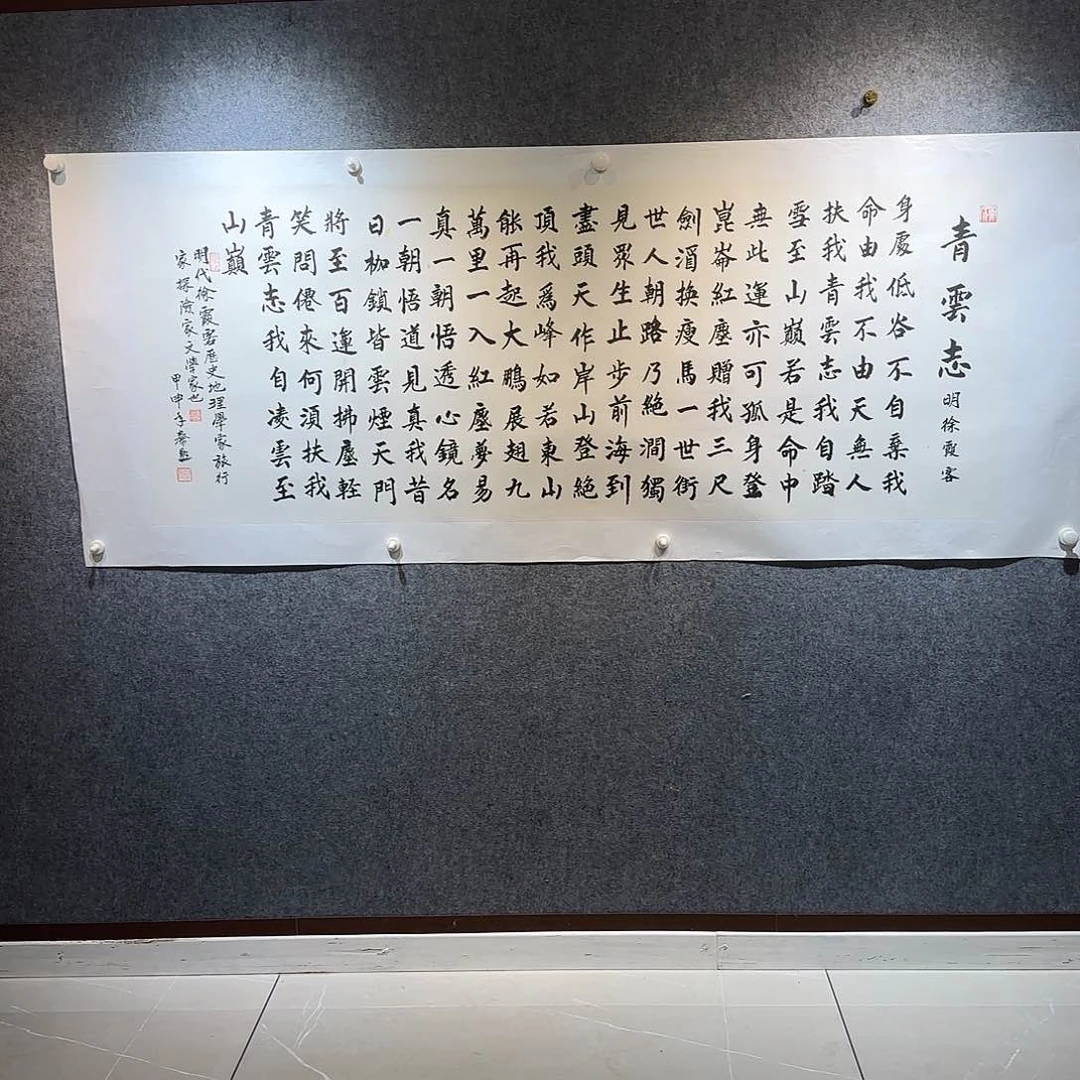 青雲志
明徐霞客
身處低谷不自棄我
命由我不由天無人
扶我青雲志我自踏
雪至山巔若是命中
無此運亦可孤身登
崑崙紅塵贈我三尺
劍酒換瘦馬一世街
世人朝路乃絕澗獨
見眾生止步前海到
盡頭天作岸山登絕
頂我為峰如若東山
能再起大鵬展翅九
萬里一入紅塵夢易
真一朝悟透心鏡名
一朝悟道見真我昔
日枷鎖皆雲煙天門
將至百運開拂塵輕
笑問僊來何須扶我
青雲志我自凌雲至
山巔
明代徐霞客歷史地理學家旅行
家探險家文學家也